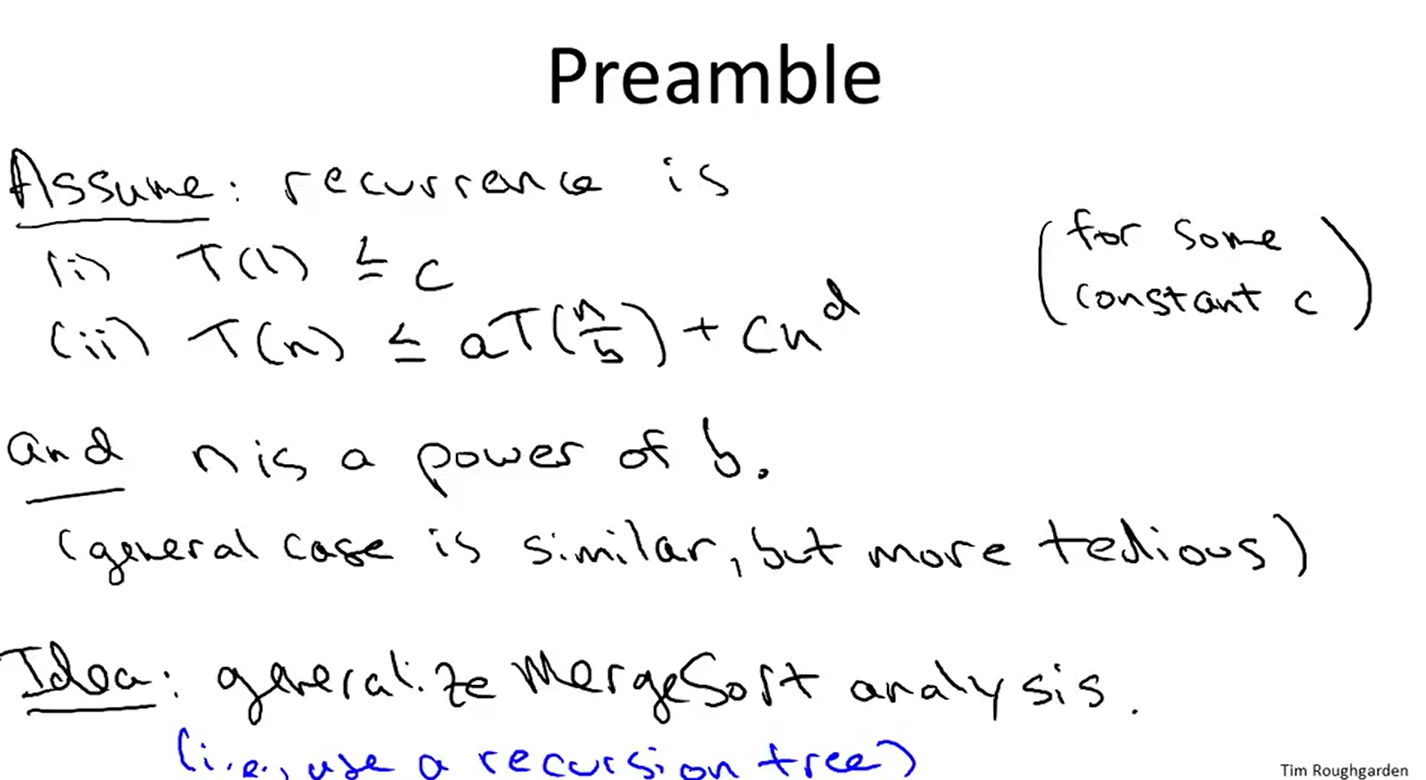 Preamble
Assume: recurrence is
(i) T(1) ≤ c
(for some constant c)
(ii) T(n) ≤ aT(n/b) + cn^d
and n is a power of b.
(general case is similar, but more tedious)
Idea: generalize MergeSort analysis.
(i.e., use a recursion tree)
Tim Roughgarden